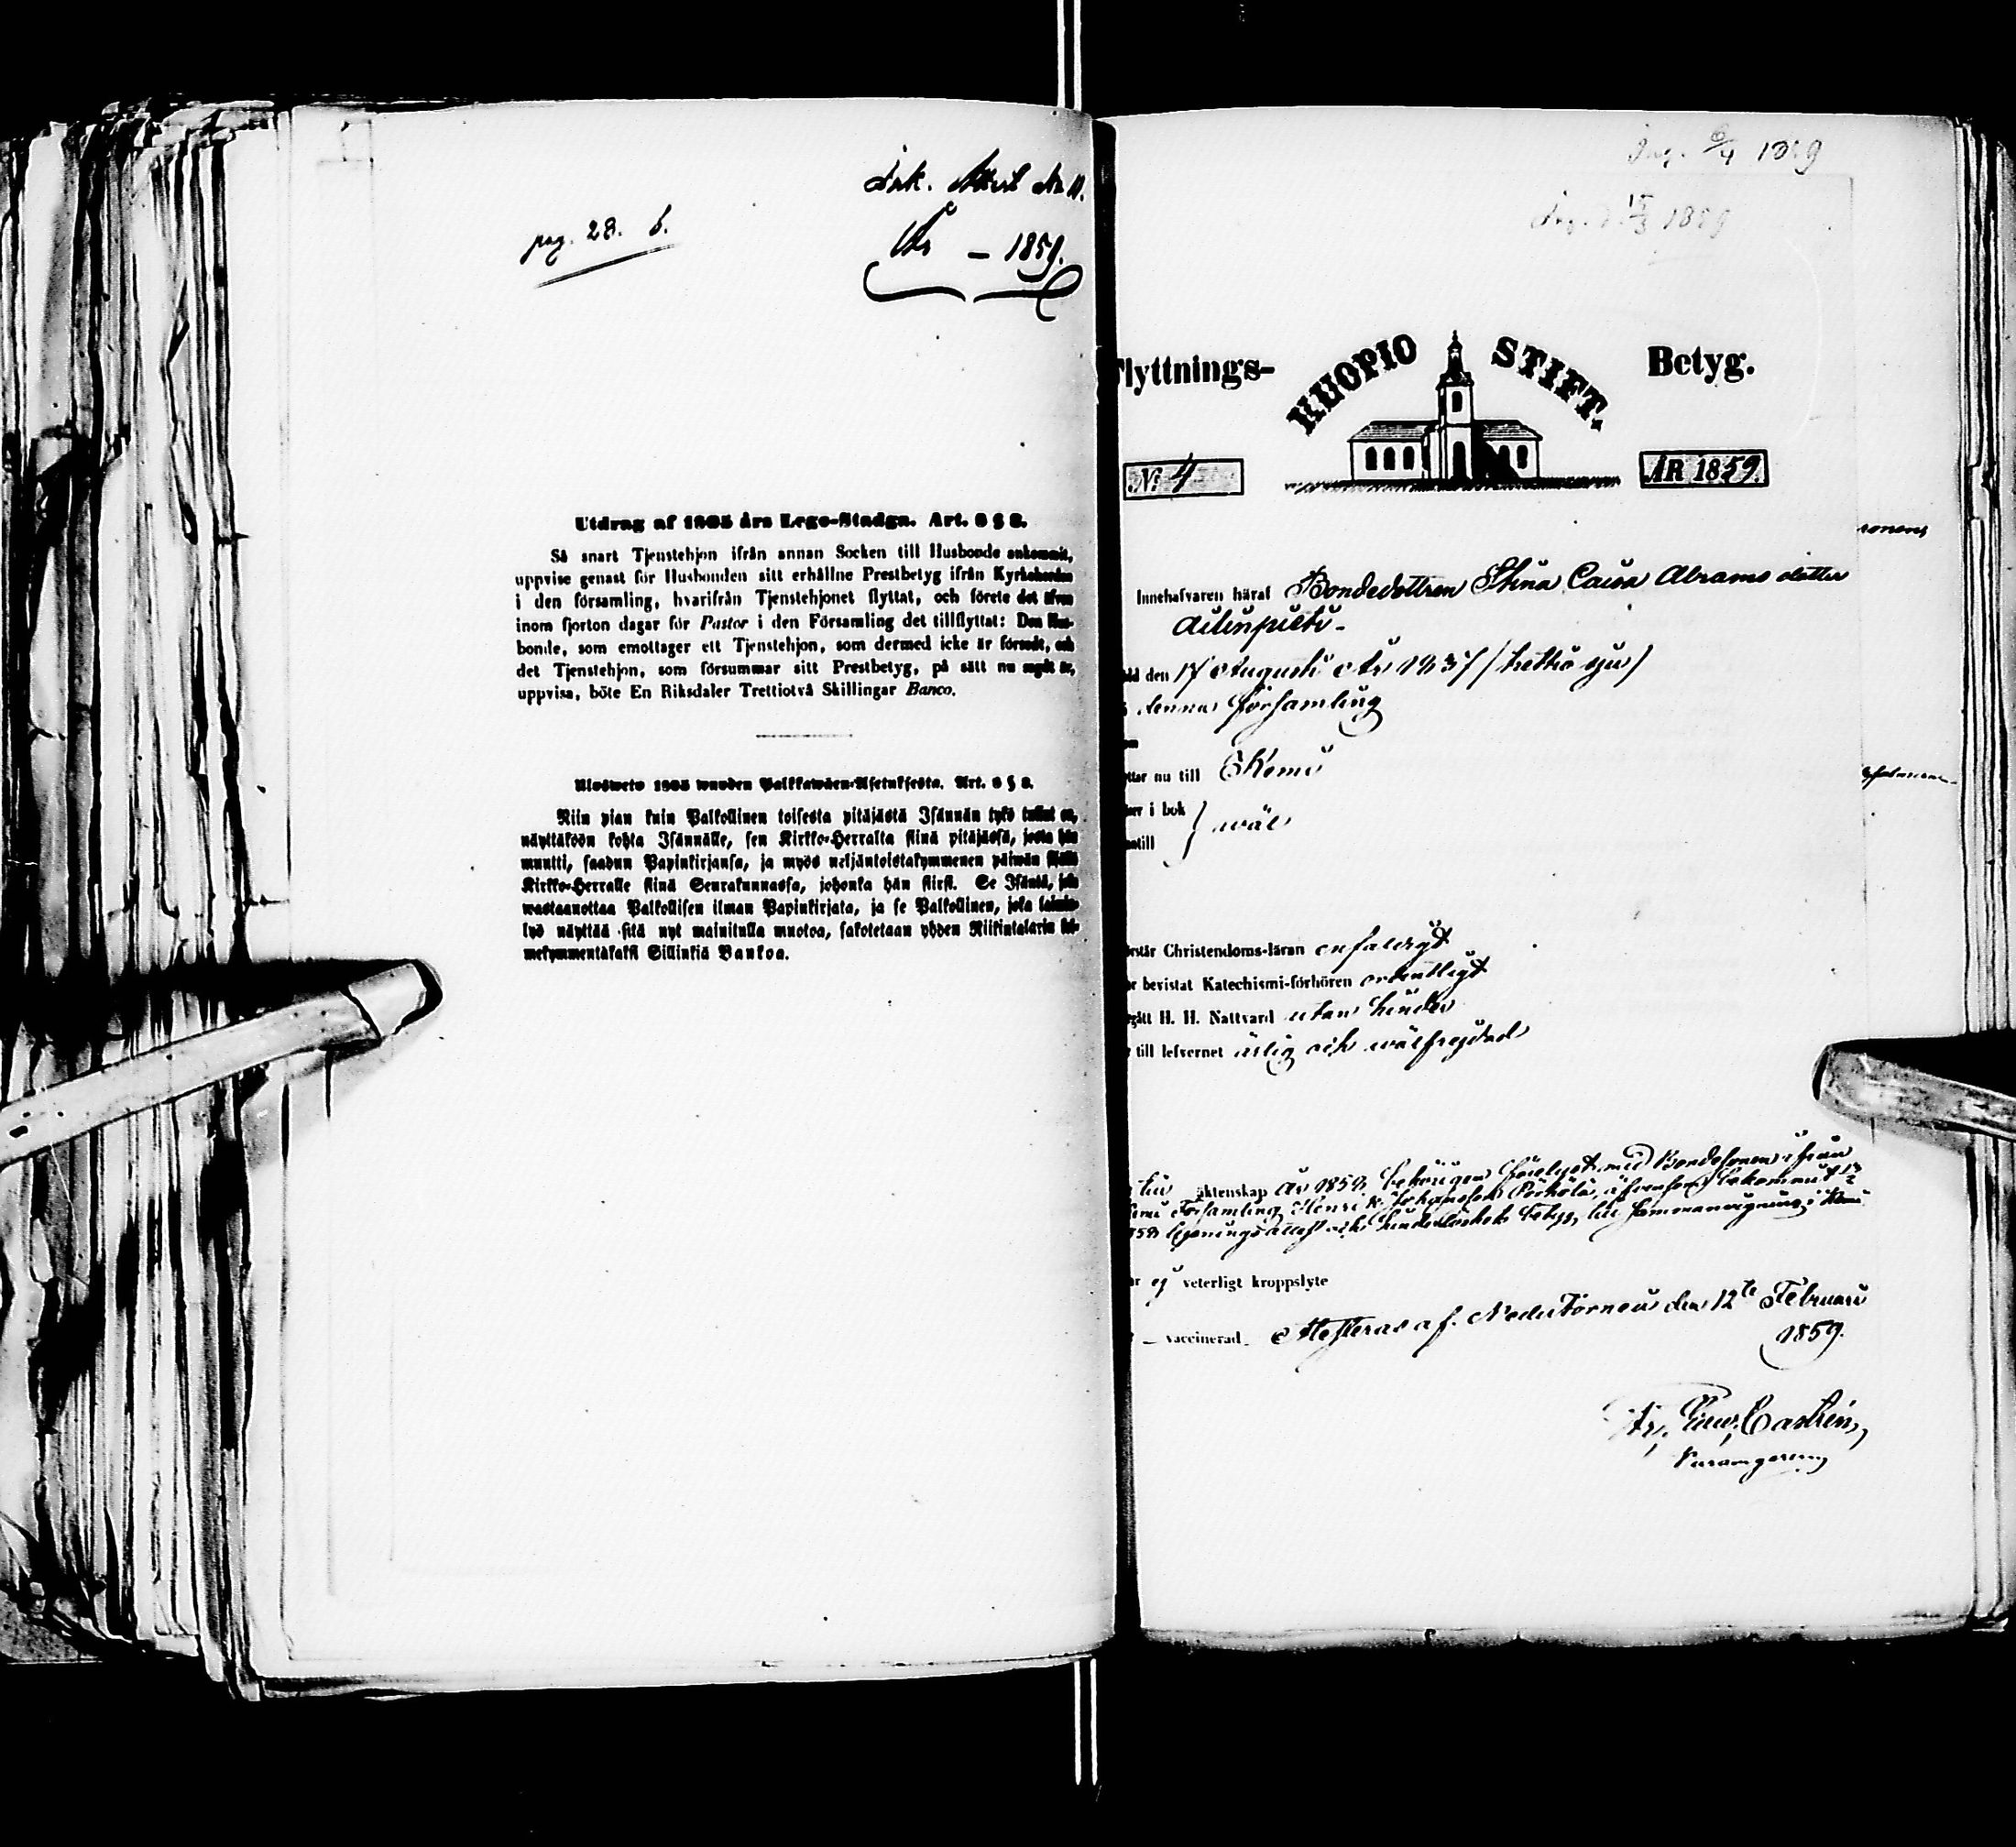 pag. 28. b.
Ink. Attest No 11.
År – 1859.
Utdrag af 1805 års Lego-Stadga. Art. 8 § 2.
Så snart Tjenstehjon ifrån annan Socken till Husbonde ankommit,
uppvise genast för Husbonden sitt erhållne Prestbetyg ifrån Kyrkoherden
i den församling, hvarifrån Tjenstehjonet flyttat, och förete det äfven
inom fjorton dagar för Pastor i den Församling det tillflyttat: Den Hus-
bonde, som emottager ett Tjenstehjon, som dermed icke är försedt, och
det Tjenstehjon, som försummar sitt Prestbetyg, på sätt nu sagdt är,
uppvisa, böte En Riksdaler Trettiotvå Skillingar Banco.
Ulosweto 1805 wuoden Palkkawäen-Asetuksesta. Art. 8 § 2.
Niin pian kuin Palkollinen toisesta pitäjästä Isännän tykö tullut on,
näyttäköön kohta Isännälle, sen Kirkko-Herralta siinä pitäjässä, josta hän
muutti, saadun Papinkirjansa, ja myös neljäntoistakymmenen päiwän sisällä
Kirkko-Herralle siinä Seurakunnassa, johonka hän siirsi. Se Isäntä, joka
wastaanottaa Palkollisen ilman Papinkirjata, ja se Palkollinen, joka laimin-
lyö näyttää sitä nyt mainitulla muotoa, sakotetaan yhden Riikintalarin kol-
mekymmentäkaksi Sillinkiä Bankoa.
Ing. 6/4 1859
1859
Flyttnings- KUOPIO STIFT. Betyg.
№ 4 ÅR 1859.
Innehafvaren häraf Bondedottren Stina Caisa Abrams dotter
Ailinpieti
den 17 Augusti År 1837 / trettio sju /
denna församling
ttar nu till Kemi
er i bok
antill } wäl
rstår Christendoms-läran enfaldigt
r bevistat Katechismi-förhören ordentligt
gått H. H. Nattvard utan hinder
till lefvernet ärlig och wälfrejdad
till äktenskap år 1859 behörigen förelyst med Bondesonen ifrån
Kemi Församling Henrik Johansson Pörhölä, äfvensom bekommit
1859 lysningsattest och hinderlöshets betyg till sammanvigning i Kemi
ar ej veterligt kroppslyte
– vaccinerad. Attesteras af. Neder Torneå den 12te Februari
1859.
Castrén,